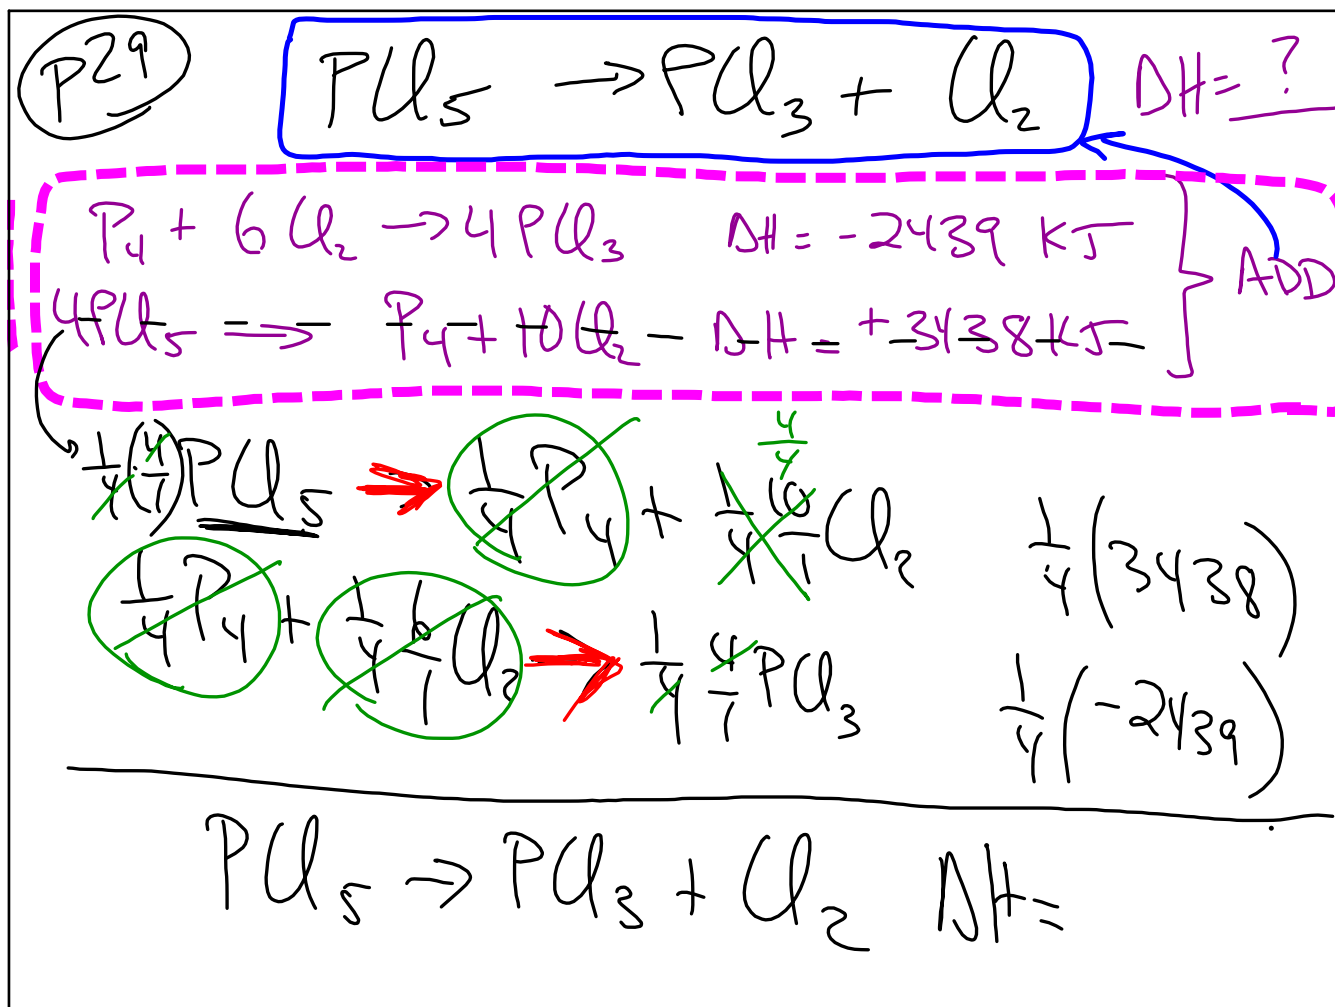 P29 PCl₅ → PCl₃ + Cl₂ ΔH = ?
P₄ + 6Cl₂ → 4PCl₃ ΔH = -2439 KJ
4PCl₅ → P₄ + 10Cl₂ ΔH = +3438 KJ
ADD
4/4
1/4 (4/1) PCl₅ → 1/4 P₄ + 1/4 10/1 Cl₂ 1/4 (3438)
1/4 P₄ + 1/4 6/1 Cl₂ → 1/4 4/1 PCl₃ 1/4 (-2439)
PCl₅ → PCl₃ + Cl₂ ΔH =